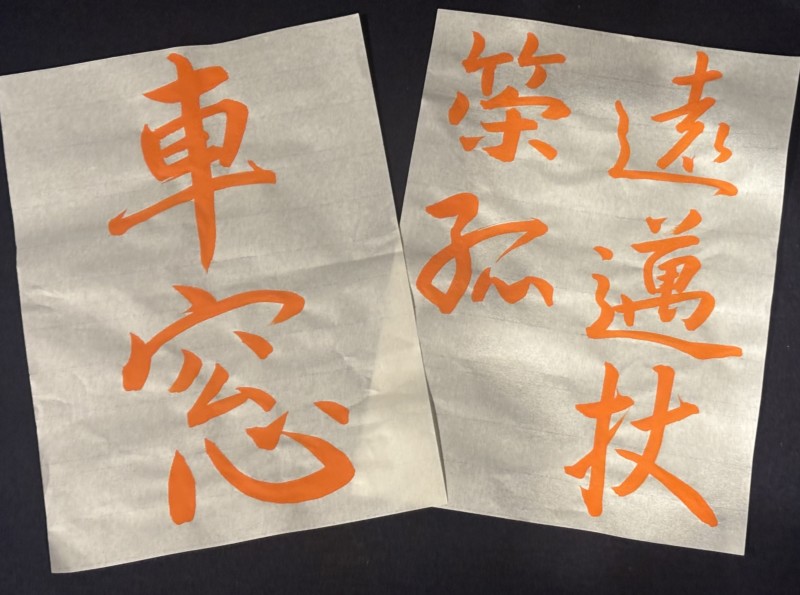 遠邁杖
策孤
車窓